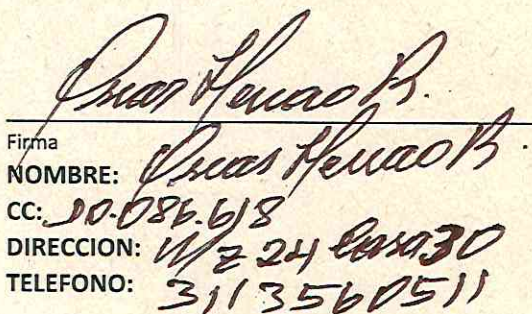 Oscar Henao R.
Firma
NOMBRE: Oscar Henao R.
CC: 10.086.618
DIRECCION: Mz 24 Casa 30
TELEFONO: 3113560511